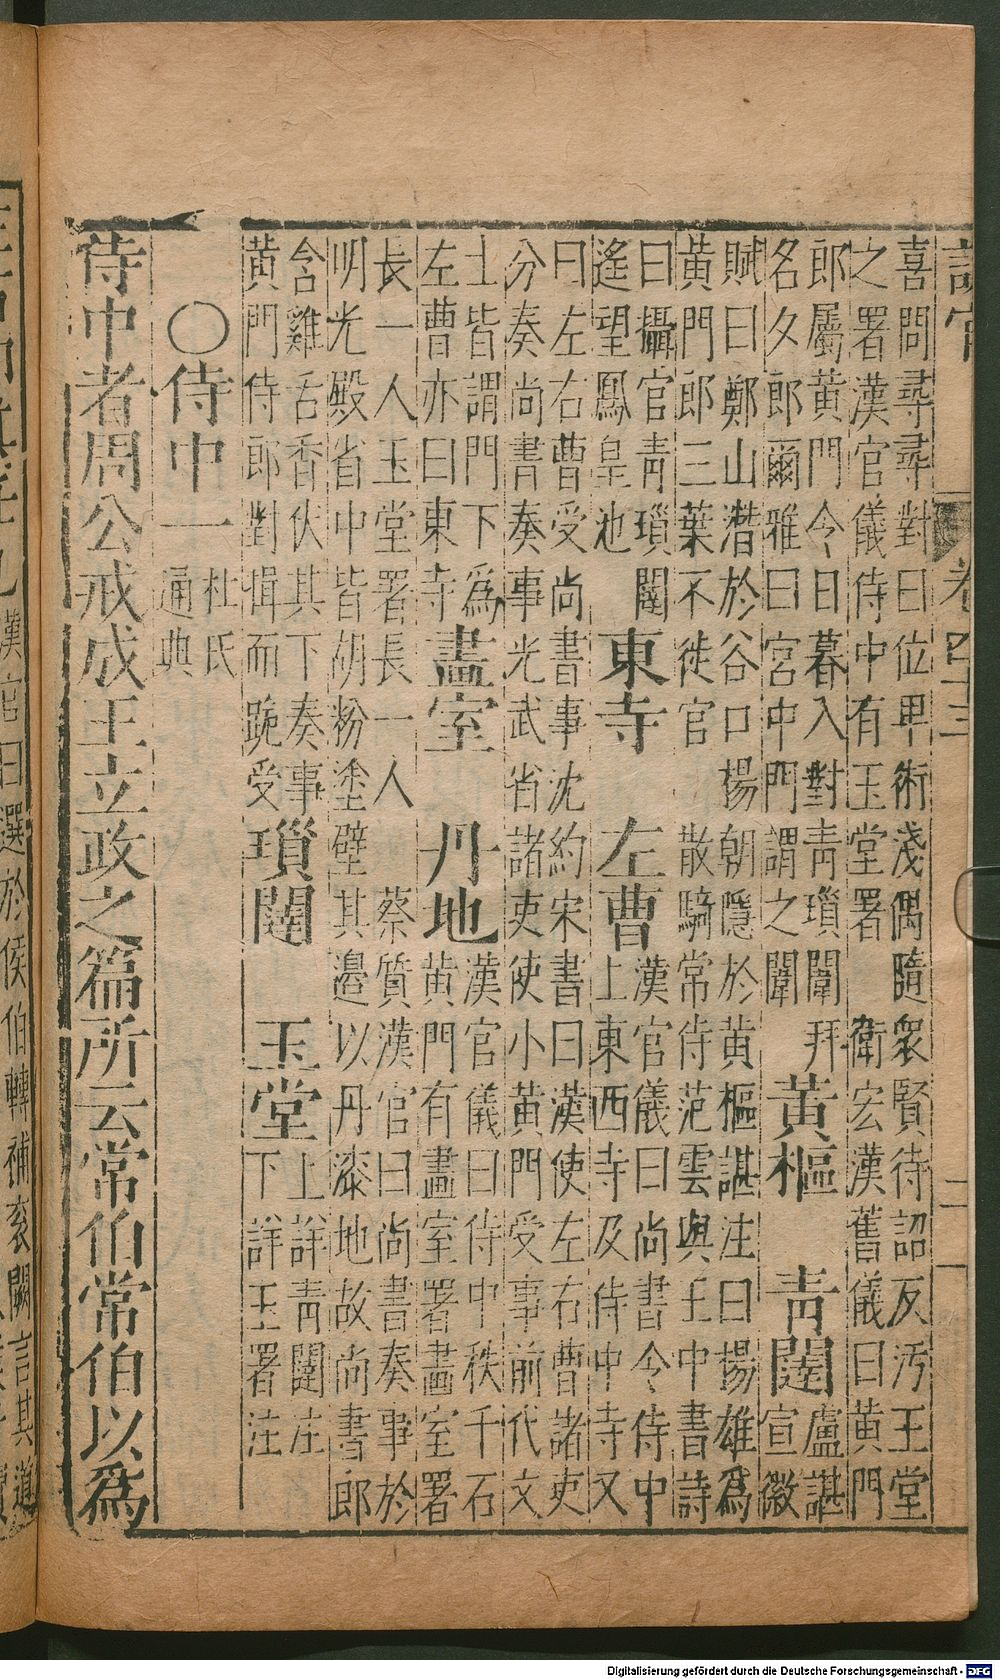 喜問尋尋對曰位卑術淺偶隨衆賢待詔反汚玉堂
之署漢官儀侍中有玉堂署 衛宏漢舊儀曰黃門
郎屬黃門今日暮入對青瑣闥拜
名夕郎爾雅曰宮中門謂之闈
黃樞 青闥
盧諶
宣徽
賦曰鄭山潛於谷口揚朝隱於黃樞諶注曰揚雄爲
黃門郎三葉不徙官 散騎常侍范雲與王中書詩
曰攝官青瑣闥
遙望鳳皇池
東寺 左曹
漢官儀曰尚書令侍中
上東西寺及侍中寺又
曰左右曹受尚書事沈約宋書曰漢使左右曹諸吏
分奏尚書奏事光武省諸吏使小黃門受事前代文
士皆謂門下爲
左曹亦曰東寺
畫室 丹地
漢官儀曰侍中秩千石
黃門有畫室署畫室署
長一人玉堂署長一人 蔡質漢官曰尚書奏事於
明光殿省中皆胡粉塗壁其邊以丹漆地故尚書郎
含雞舌香伏其下奏事
黃門侍郎對揖而跪受
瑣闥 玉堂
上詳青闥注
下詳玉署注
〇侍中一
杜氏
通典
侍中者周公戒成王立政之篇所云常伯常伯以爲
卷四十三
二
漢官曰選於侯伯轉補袞闕言其道
Digitalisierung gefördert durch die Deutsche Forschungsgemeinschaft - DFG